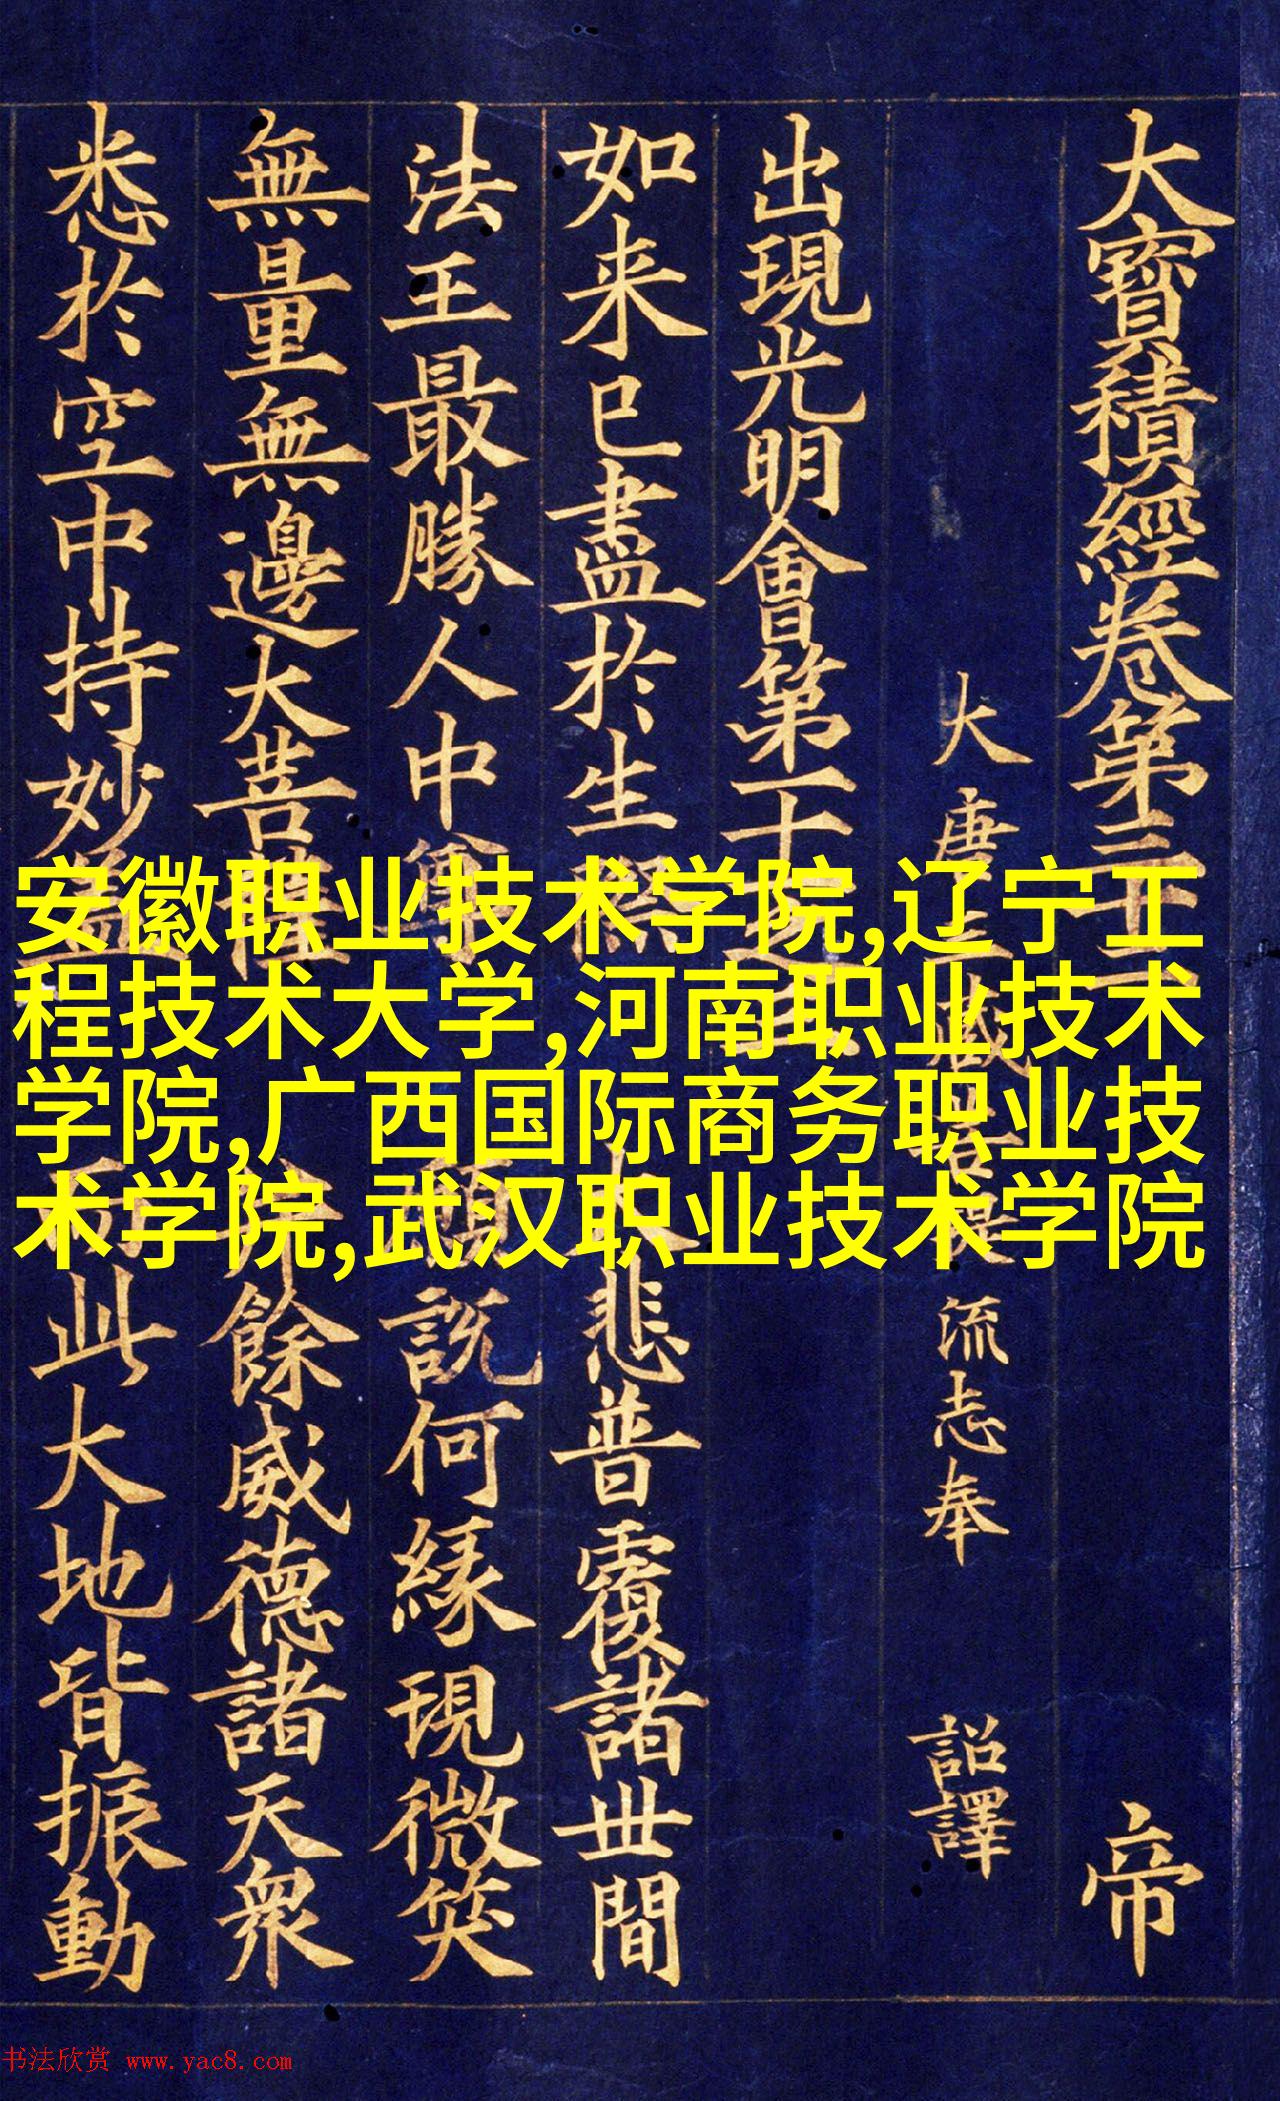 大寶積經卷第三十二
帝
大唐三藏菩提流志奉
詔譯
出現光明會第十一之三
如来已盡於生
大悲普覆諸世間
法王最勝人中尊
願說何緣現微笑
無量無邊大菩薩
餘威德諸天衆
悉於空中持妙盖
而此大地皆振動
安徽职业技术学院,辽宁工
程技术大学,河南职业技术
学院,广西国际商务职业技
术学院,武汉职业技术学院
书法欣赏 www.yac8.com